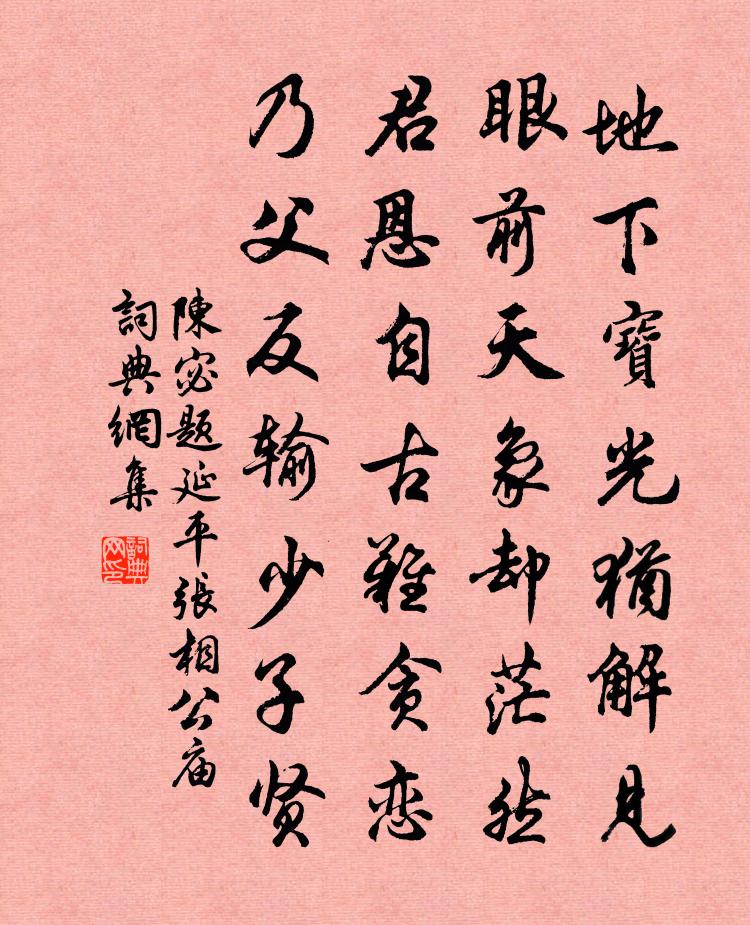 地下寶光猶解見
眼前天象却茫然
君恩自古難贪恋
乃父反输少子贤
陳宓题延平張相公庙
詞典網集
詞典网印